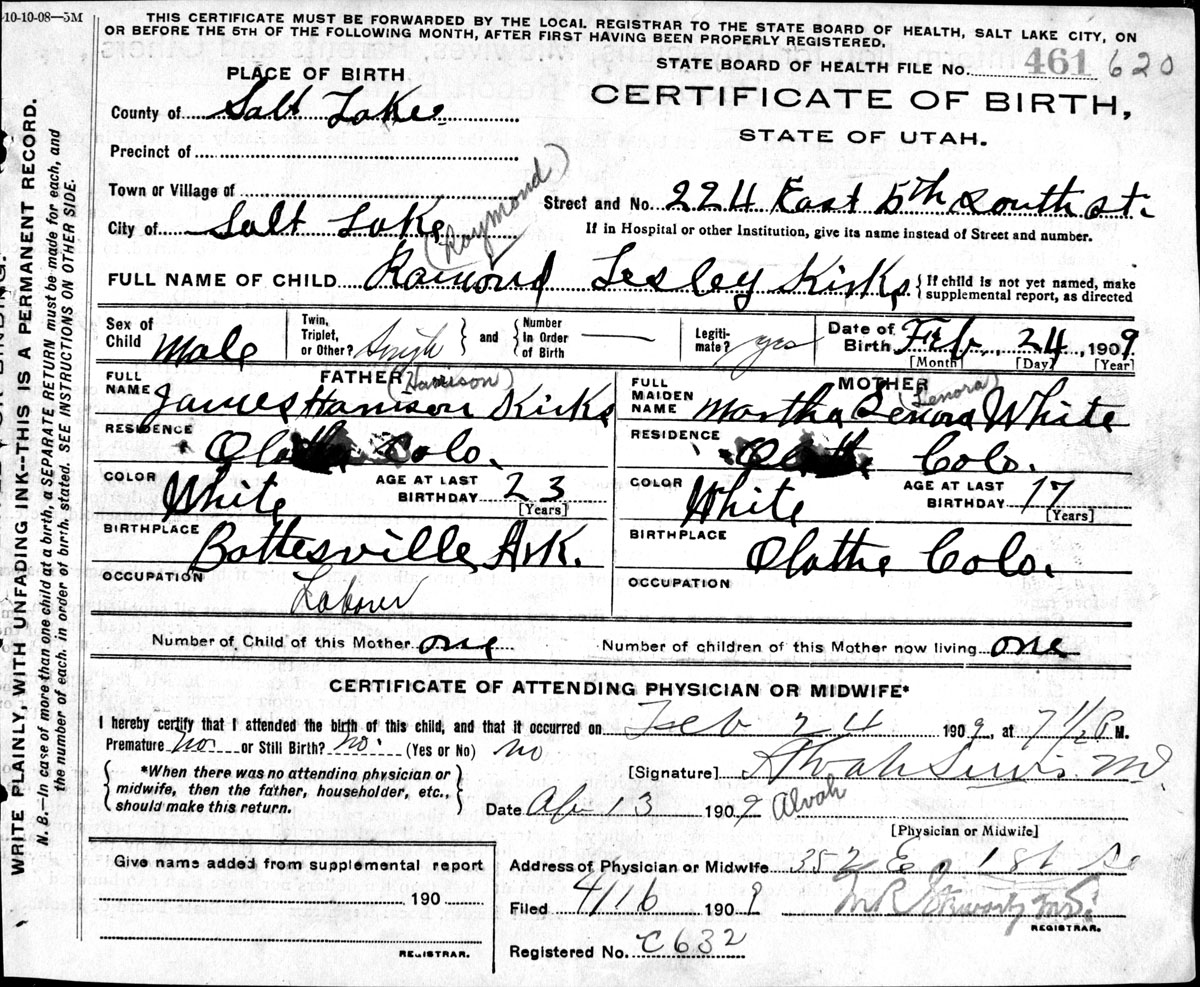 10-10-08—5M
THIS CERTIFICATE MUST BE FORWARDED BY THE LOCAL REGISTRAR TO THE STATE BOARD OF HEALTH, SALT LAKE CITY, ON
OR BEFORE THE 5TH OF THE FOLLOWING MONTH, AFTER FIRST HAVING BEEN PROPERLY REGISTERED.
STATE BOARD OF HEALTH FILE No. 461 620
CERTIFICATE OF BIRTH,
STATE OF UTAH.
PLACE OF BIRTH
County of Salt Lake
Precinct of
Town or Village of
Street and No. 224 East 5th South St.
City of Salt Lake
If in Hospital or other Institution, give its name instead of Street and number.
(Raymond)
FULL NAME OF CHILD Raimond Lesley Kirks { If child is not yet named, make supplemental report, as directed
Sex of Child Male
Twin, Triplet, or Other? Single } and { Number In Order of Birth —
Legitimate? yes
Date of Birth Feb. 24, 1909.
[Month] [Day] [Year]
FATHER (Harrison)
FULL NAME James Harrison Kirks
RESIDENCE Olathe Colo.
COLOR White AGE AT LAST BIRTHDAY 23 [Years]
BIRTHPLACE Battesville Ark.
OCCUPATION Laborer
MOTHER (Lenora)
FULL MAIDEN NAME Martha Lenora White
RESIDENCE Olathe Colo.
COLOR White AGE AT LAST BIRTHDAY 17 [Years]
BIRTHPLACE Olathe Colo.
OCCUPATION
Number of Child of this Mother one Number of children of this Mother now living one
CERTIFICATE OF ATTENDING PHYSICIAN OR MIDWIFE*
I hereby certify that I attended the birth of this child, and that it occurred on Feb 24 1909, at 7 1/2 P M.
Premature No. or Still Birth? No. (Yes or No) no
{ *When there was no attending physician or midwife, then the father, householder, etc., should make this return. }
[Signature] Alvah Lewis. MD
Date Apr 13 1909 Alvah
[Physician or Midwife]
Give name added from supplemental report
190
REGISTRAR.
Address of Physician or Midwife 352 E 1st So
Filed 4/16 1909
REGISTRAR.
Registered No. C632
WRITE PLAINLY, WITH UNFADING INK--THIS IS A PERMANENT RECORD.
N. B.—In case of more than one child at a birth, a SEPARATE RETURN must be made for each, and
the number of each, in order of birth, stated. SEE INSTRUCTIONS ON OTHER SIDE.